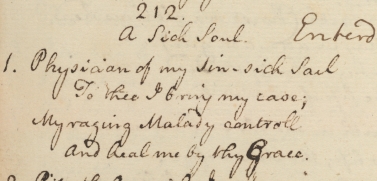 212.
A Sick Soul. Enterd
1. Physician of my sin-sick Soul
To thee I bring my case;
My raging Malady controll
And heal me by thy Grace.